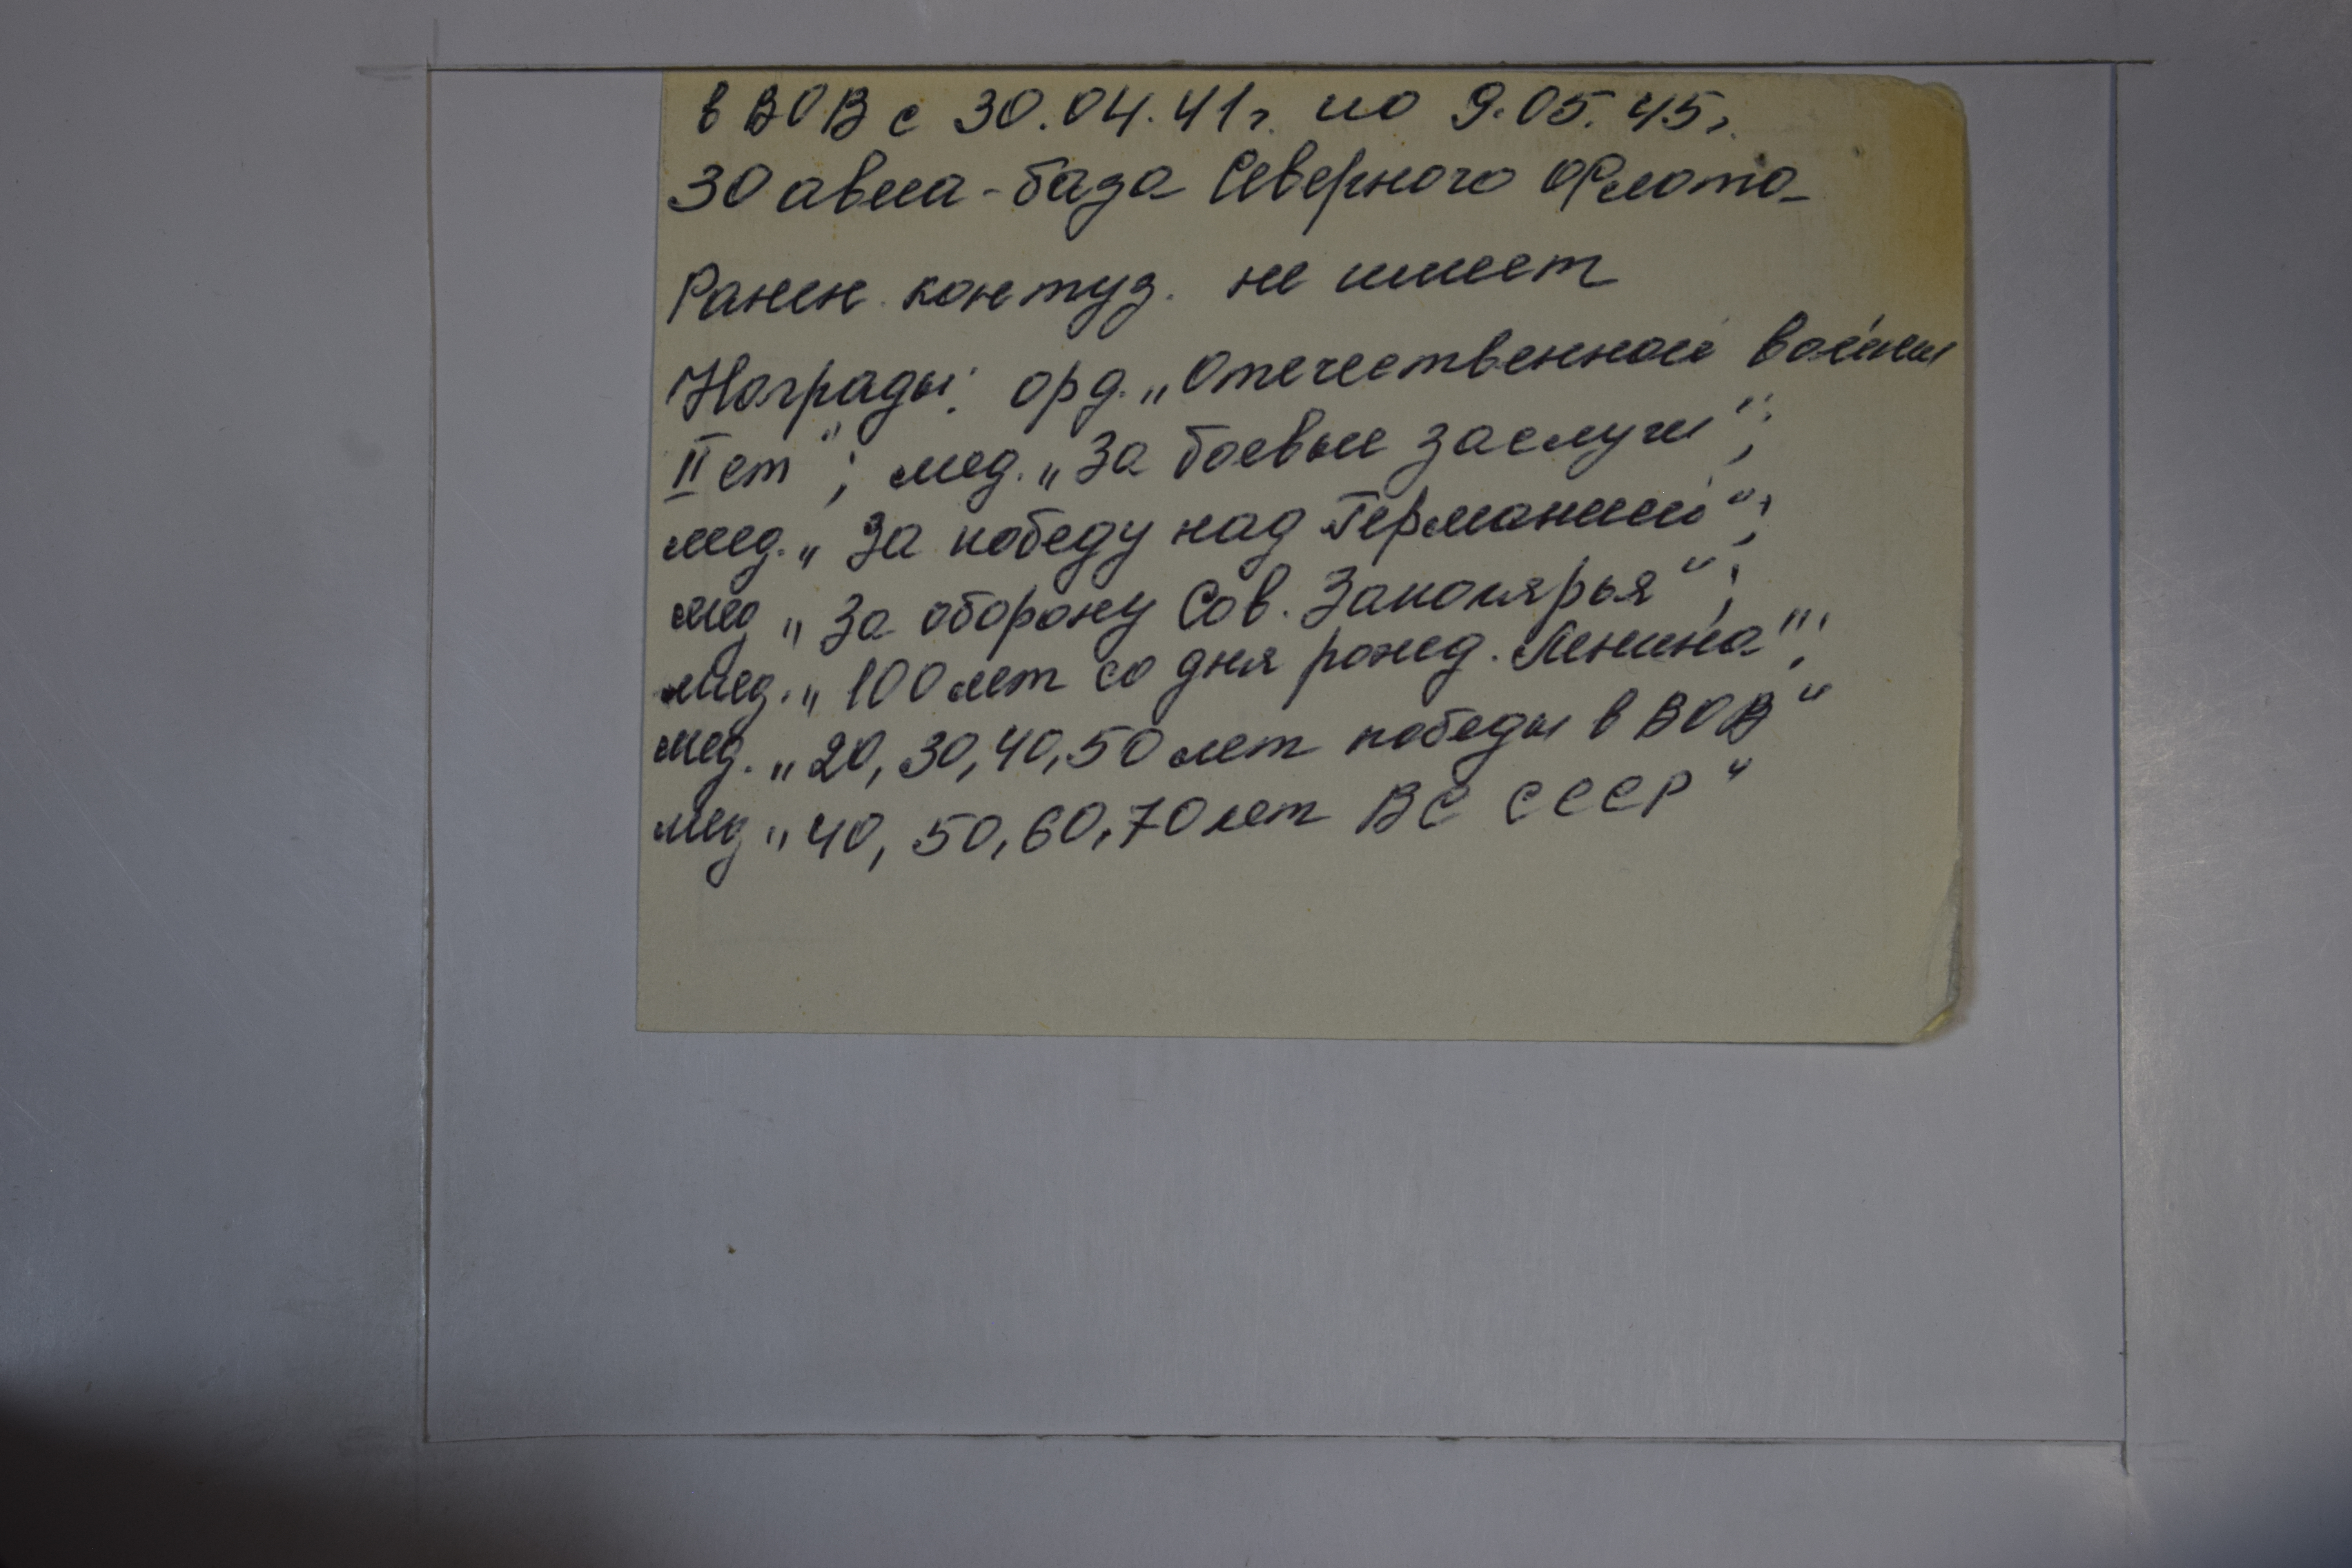 в ВОВ с 30.04.41г. по 9.05.45г.
30 авиа-база Северного Флота
Ранен. контуз. не имеет
Награды: орд. „Отечественной войны
II ст"; мед. „За боевые заслуги";
мед. „За победу над Германией";
мед „За оборону Сов. Заполярья";
мед. „100 лет со дня рожд. Ленина";
мед. „20, 30, 40, 50 лет победы в ВОВ"
мед „40, 50, 60, 70 лет ВС СССР"